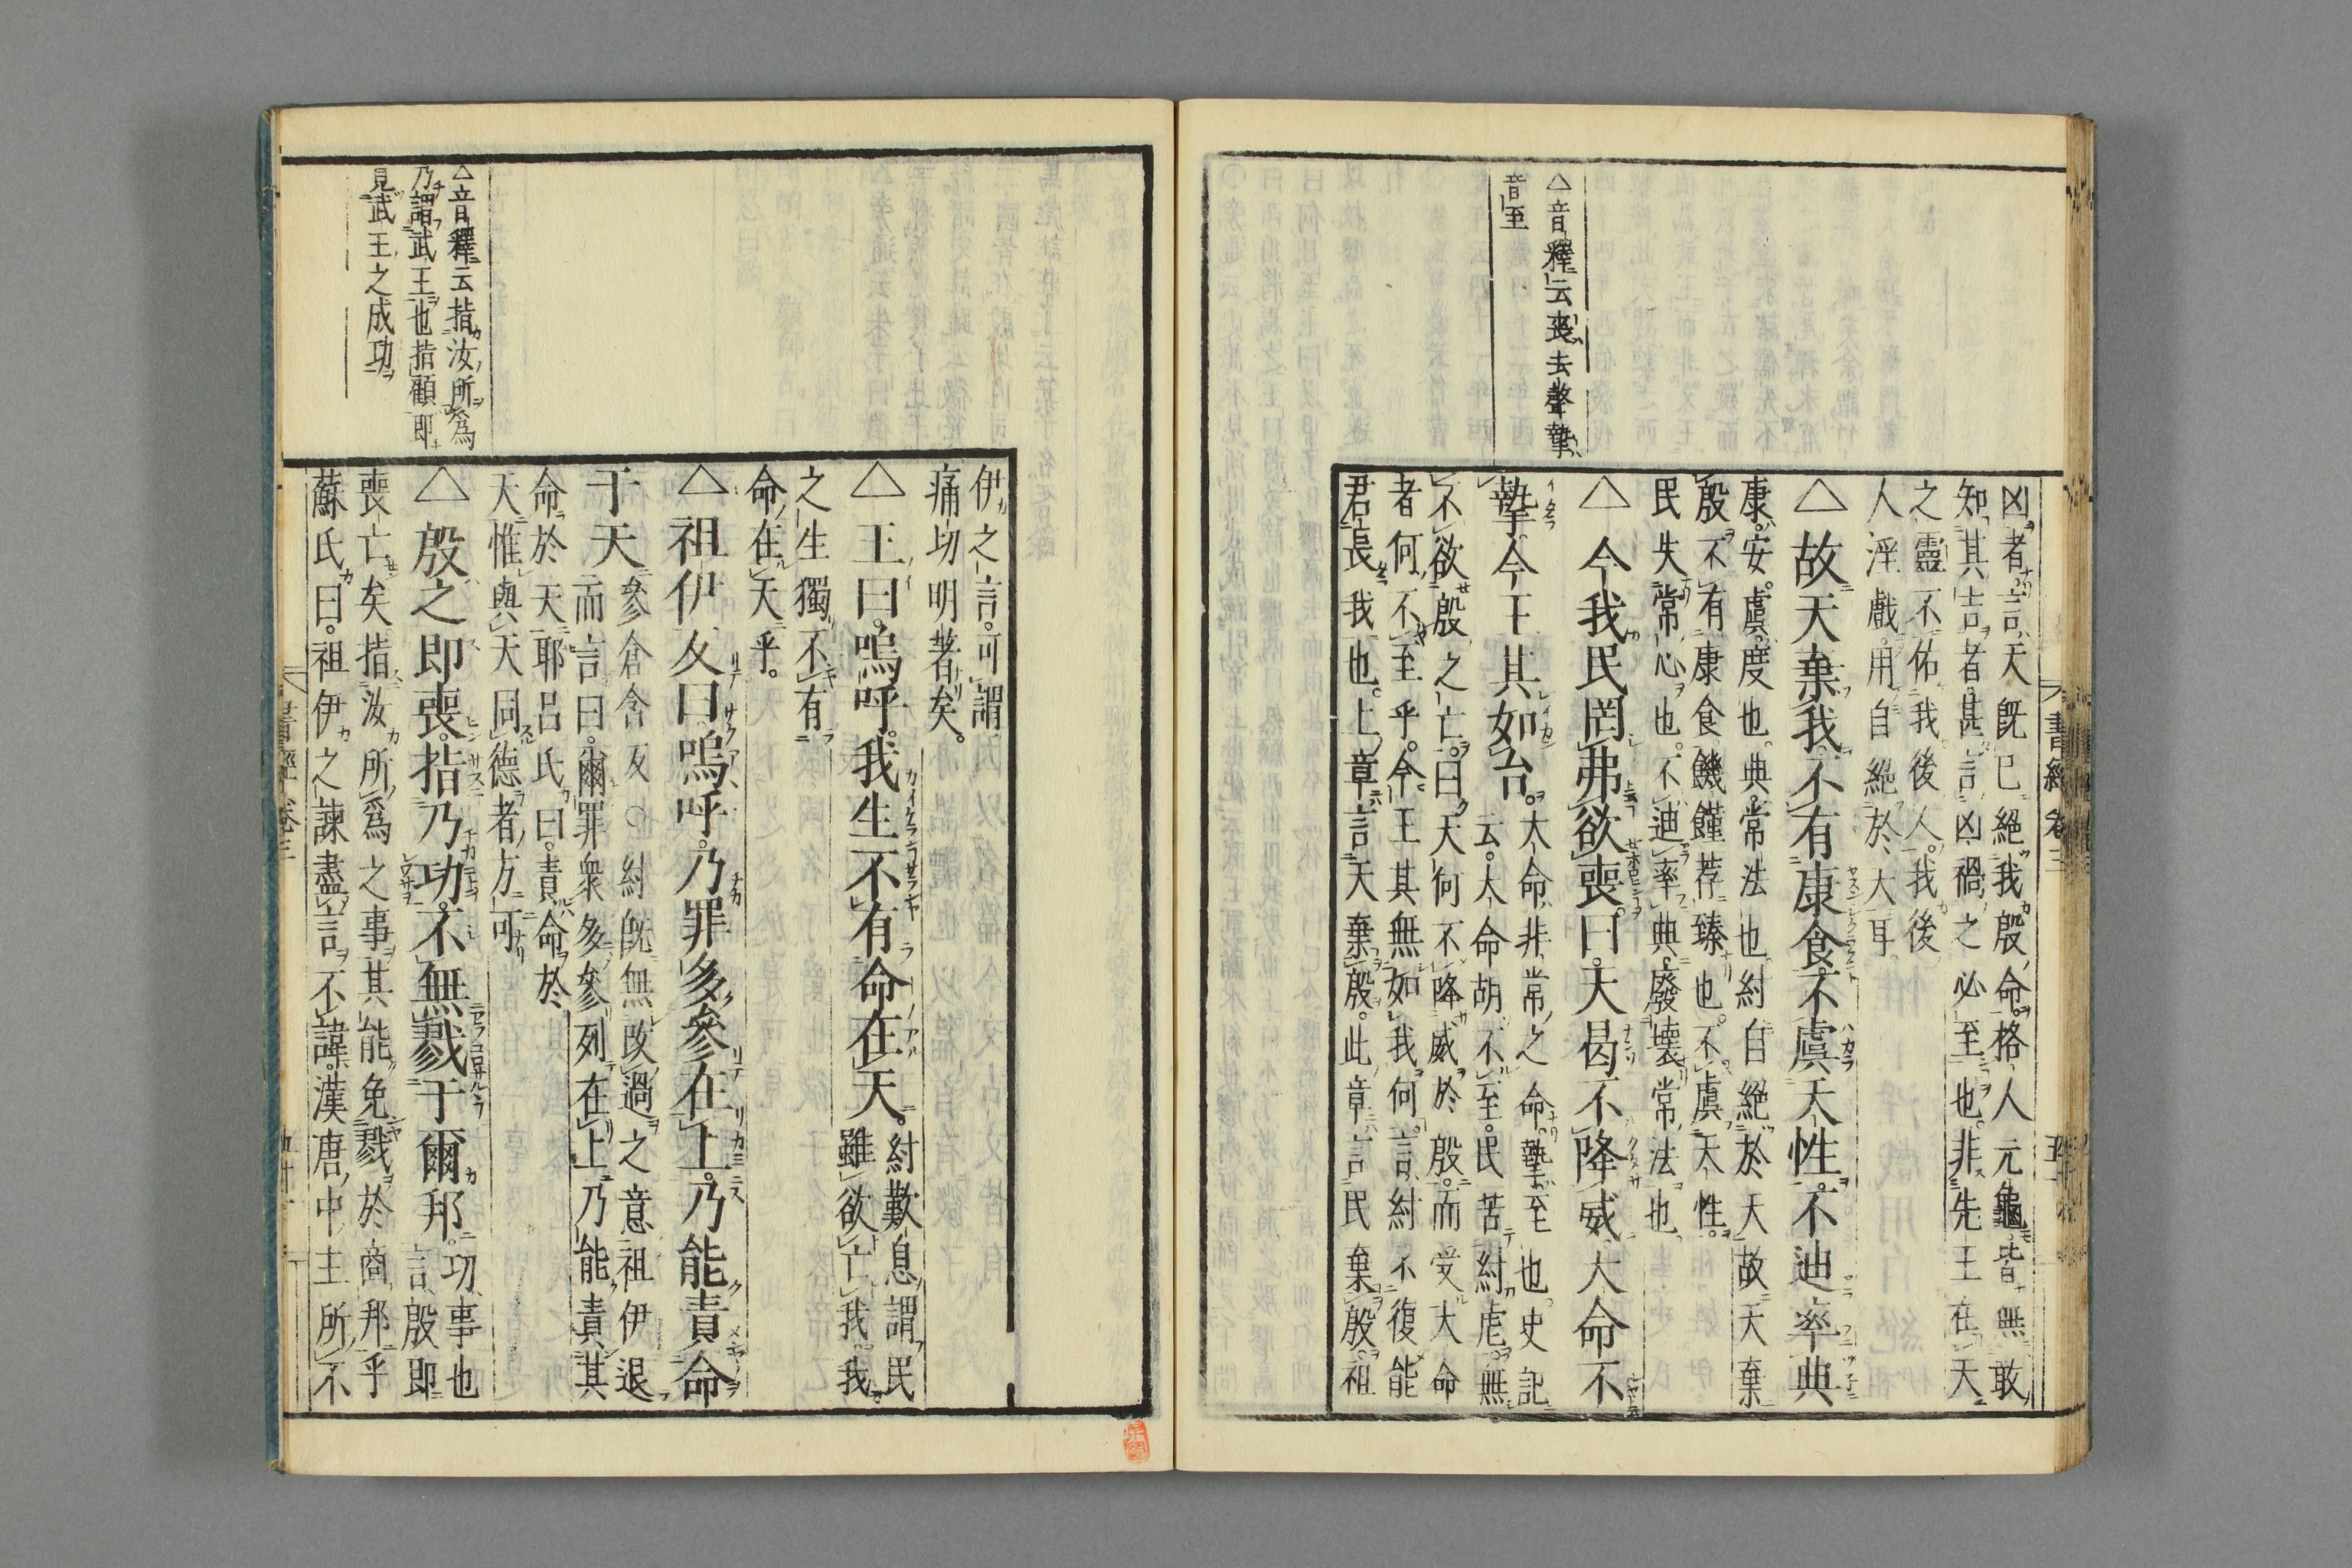 書經卷三
△音釋云喪去聲摯
音至
凶者言天既已絕我殷命。格人元龜皆無敢
知其吉者。甚言凶禍之必至也。非先王在天
之靈不佑我後人。我後
人淫戲。用自絕於天耳。
△故天棄我不有康食不虞天性。不迪率典
康。安。虞。度也。典。常法也。紂自絕於天故天棄
殷不有康食饑饉荐臻也。不虞天性。
民失常心也。不迪率典。廢壞常法也。
△今我民罔弗欲喪曰。天曷不降威大命不
摯今王其如台。大命非常之命摯至也。史記
云。大命胡不至。民苦紂虐。無
不欲殷之亡。曰天何不降威於殷。而受大命
者何不至乎。今王其無如我何。言紂不復能
君長我也。上章言天棄殷。此章言民棄殷。祖
△音釋云指汝所爲
乃謂武王也指顧即
見武王之成功
伊之言。可謂
痛切明著矣。
△王曰。嗚呼。我生不有命在天。紂歎息謂民
雖欲亡我我
之生獨不有
命在天乎。
△祖伊反曰。嗚呼。乃罪多參在上。乃能責命
于天參倉含反○紂既無改過之意祖伊退
而言曰。爾罪衆多參列在上乃能責其
命於天耶呂氏曰。責命於
天惟與天同德者方可
△殷之即喪。指乃功。不無戮于爾邦。功事也
言殷即
喪亡矣指汝所爲之事其能免戮於商邦乎
蘇氏曰。祖伊之諫盡言不諱。漢唐中主所不
書經卷三